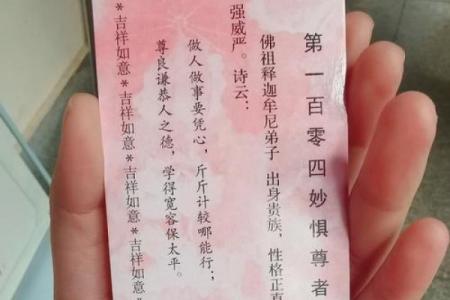 第一百零四妙惧尊者
佛祖释迦牟尼弟子 出身贵族，性格正直
强威严。诗云：
做人做事要凭心，斤斤计较哪能行；
尊良谦恭人之德，学得宽容保太平。
*吉祥如意*吉祥如意*吉祥如意*吉祥如意*